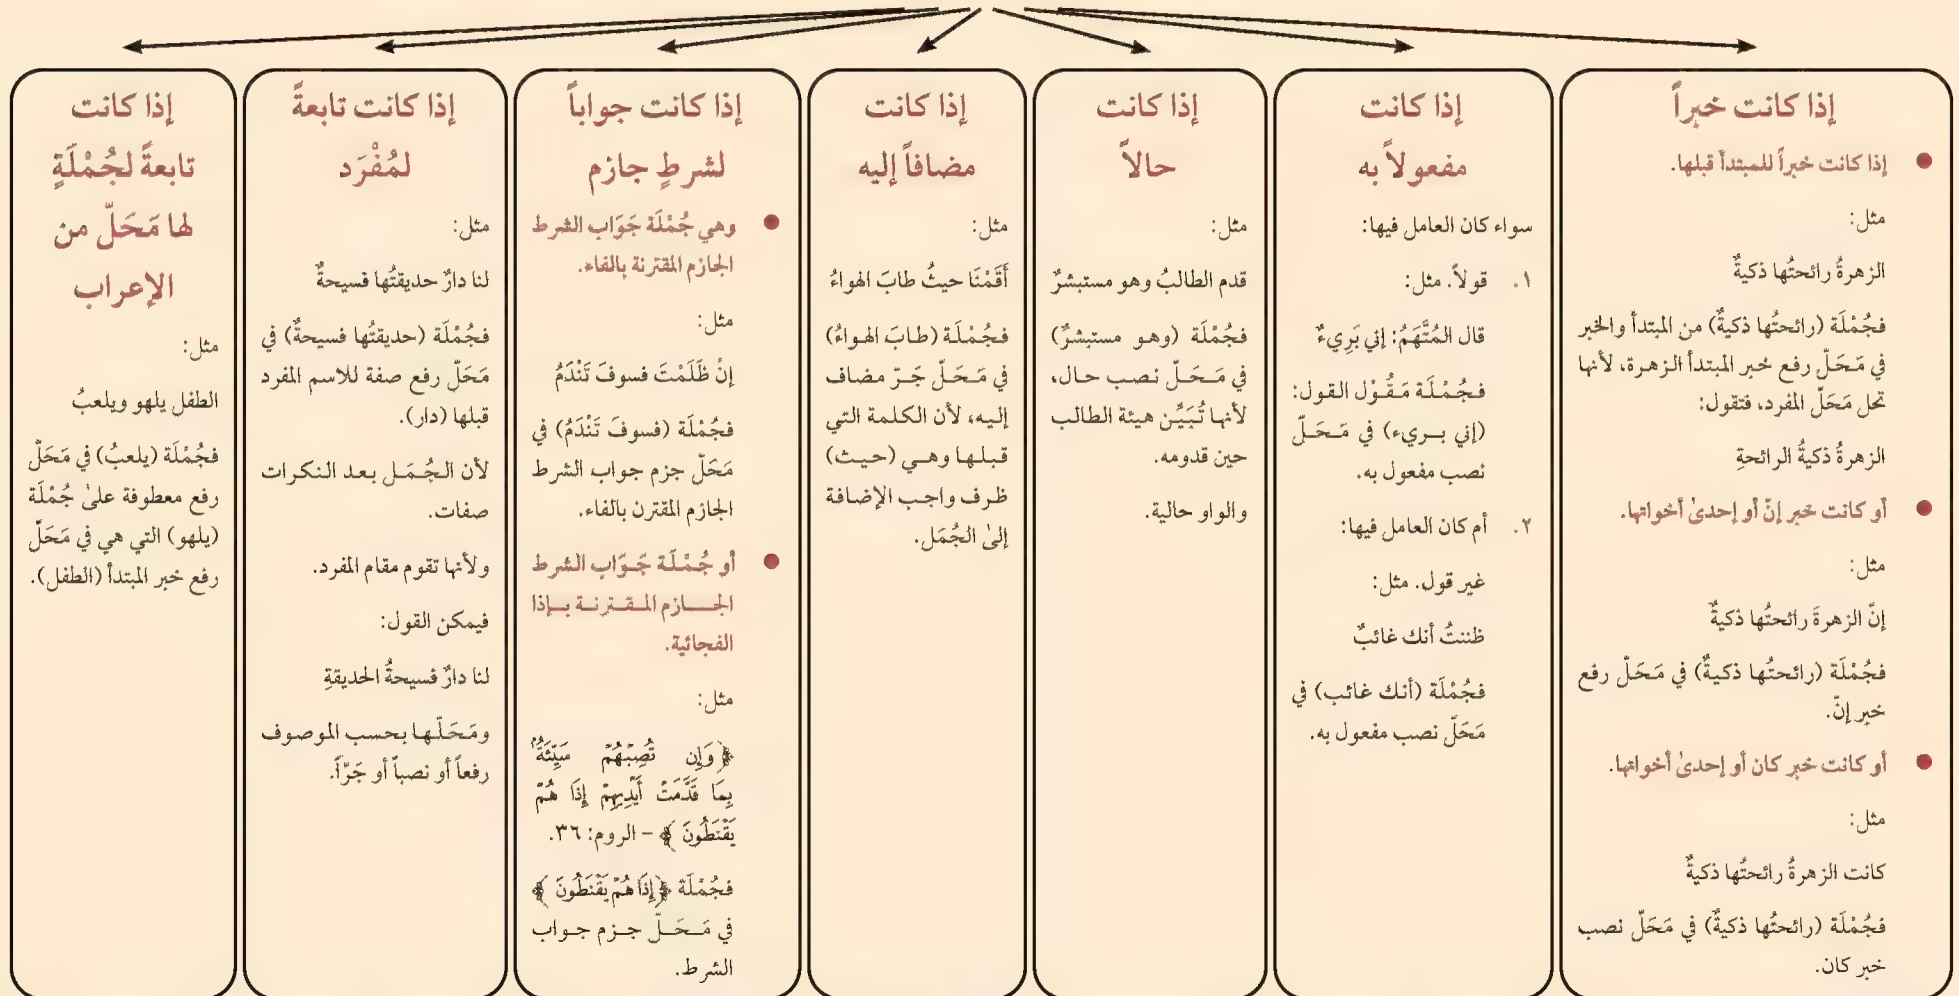 إذا كانت خبراً
إذا كانت خبراً للمبتدأ قبلها.
مثل:
الزهرةُ رائحتُها ذكيةٌ
فجُمْلَة (رائحتُها ذكيةٌ) من المبتدأ والخبر
في مَحَلّ رفع خبر المبتدأ الزهرة، لأنها
تحل مَحَلّ المفرد، فتقول:
الزهرةُ ذكيةُ الرائحةِ
أو كانت خبر إنّ أو إحدىٰ أخواتها.
مثل:
إنّ الزهرةَ رائحتُها ذكيةٌ
فجُمْلَة (رائحتُها ذكيةٌ) في مَحَلّ رفع
خبر إنّ.
أو كانت خبر كان أو إحدىٰ أخواتها.
مثل:
كانت الزهرةُ رائحتُها ذكيةٌ
فجُمْلَة (رائحتُها ذكيةٌ) في مَحَلّ نصب
خبر كان.
إذا كانت
مفعولاً به
سواء كان العامل فيها:
١. قولاً. مثل:
قال المُتَّهَمُ: إني بَرِيءٌ
فجُمْلَة مَقُوْل القول:
(إني بريء) في مَحَلّ
نصب مفعول به.
٢. أم كان العامل فيها:
غير قول. مثل:
ظننتُ أنك غائبٌ
فجُمْلَة (أنك غائب) في
مَحَلّ نصب مفعول به.
إذا كانت
حالاً
مثل:
قدم الطالبُ وهو مستبشرٌ
فجُمْلَة (وهو مستبشرٌ)
في مَحَلّ نصب حال،
لأنها تُبَيِّن هيئة الطالب
حين قدومه.
والواو حالية.
إذا كانت
مضافاً إليه
مثل:
أَقَمْنَا حيثُ طابَ الهواءُ
فجُمْلَة (طابَ الهواءُ)
في مَحَلّ جَرّ مضاف
إليه، لأن الكلمة التي
قبلها وهي (حيث)
ظرف واجب الإضافة
إلىٰ الجُمَل.
إذا كانت جواباً
لشرطٍ جازم
وهي جُمْلَة جَوَاب الشرط
الجازم المقترنة بالفاء.
مثل:
إنْ ظَلَمْتَ فسوفَ تَنْدَمُ
فجُمْلَة (فسوفَ تَنْدَمُ) في
مَحَلّ جزم جواب الشرط
الجازم المقترن بالفاء.
أو جُمْلَة جَوَاب الشرط
الجازم المقترنة بإذا
الفجائية.
مثل:
﴿وَإِن تُصِبْهُمْ سَيِّئَةٌۢ
بِمَا قَدَّمَتْ أَيْدِيهِمْ إِذَا هُمْ
يَقْنَطُونَ﴾ – الروم: ٣٦.
فجُمْلَة ﴿إِذَا هُمْ يَقْنَطُونَ﴾
في مَحَلّ جزم جواب
الشرط.
إذا كانت تابعةً
لمُفْرَد
مثل:
لنا دارٌ حديقتُها فسيحةٌ
فجُمْلَة (حديقتُها فسيحةٌ) في
مَحَلّ رفع صفة للاسم المفرد
قبلها (دار).
لأن الجُمَل بعد النكرات
صفات.
ولأنها تقوم مقام المفرد.
فيمكن القول:
لنا دارٌ فسيحةُ الحديقةِ
ومَحَلّها بحسب الموصوف
رفعاً أو نصباً أو جَرّاً.
إذا كانت
تابعةً لجُمْلَةٍ
لها مَحَلّ من
الإعراب
مثل:
الطفل يلهو ويلعبُ
فجُمْلَة (يلعبُ) في مَحَلّ
رفع معطوفة علىٰ جُمْلَة
(يلهو) التي هي في مَحَلّ
رفع خبر المبتدأ (الطفل).